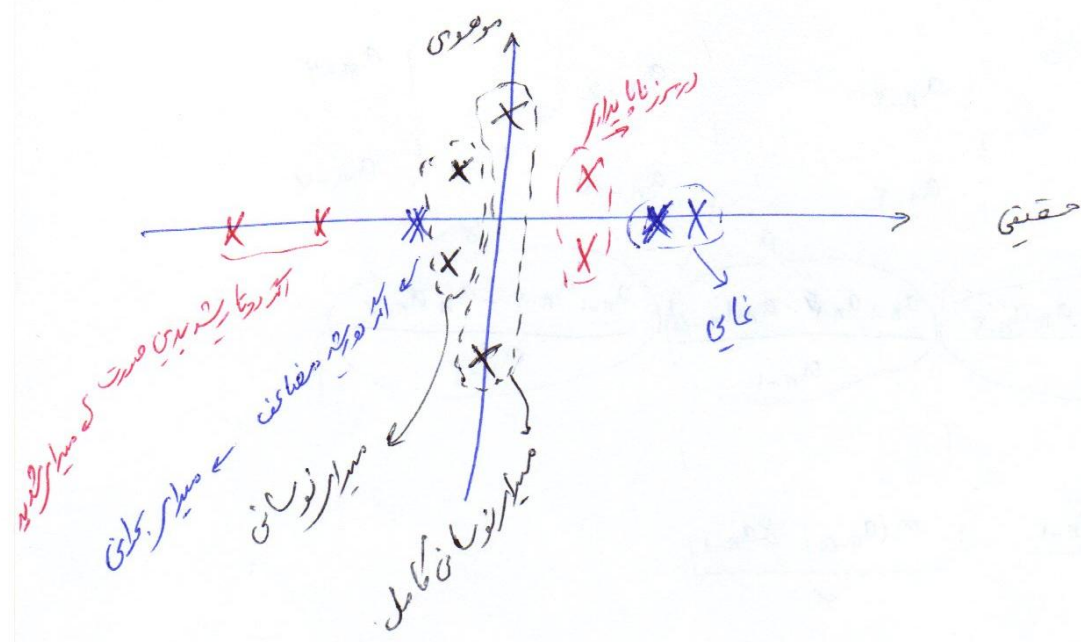 موهومی
در مرز ناپایداری
حقیقی
نمایی
اگر دوتا ریشه بدین صورت که میرای شدید
اگر دو ریشه مضاعف ← میرای بحرانی
میرای نوسانی
میرای نوسانی کامل